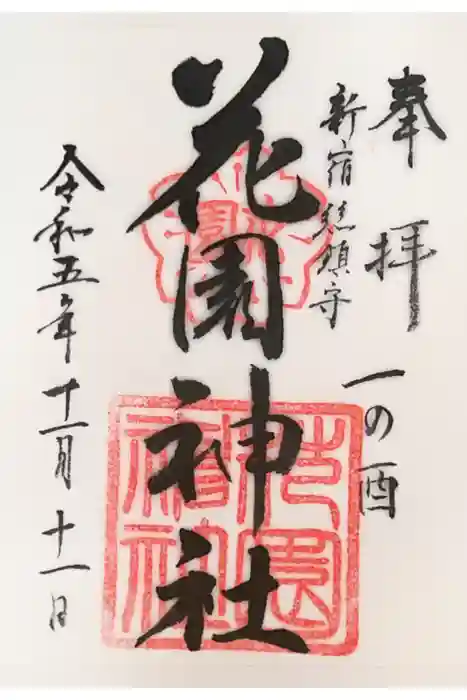 奉拝
一の酉
新宿總鎮守
花園神社
令和五年十一月十一日